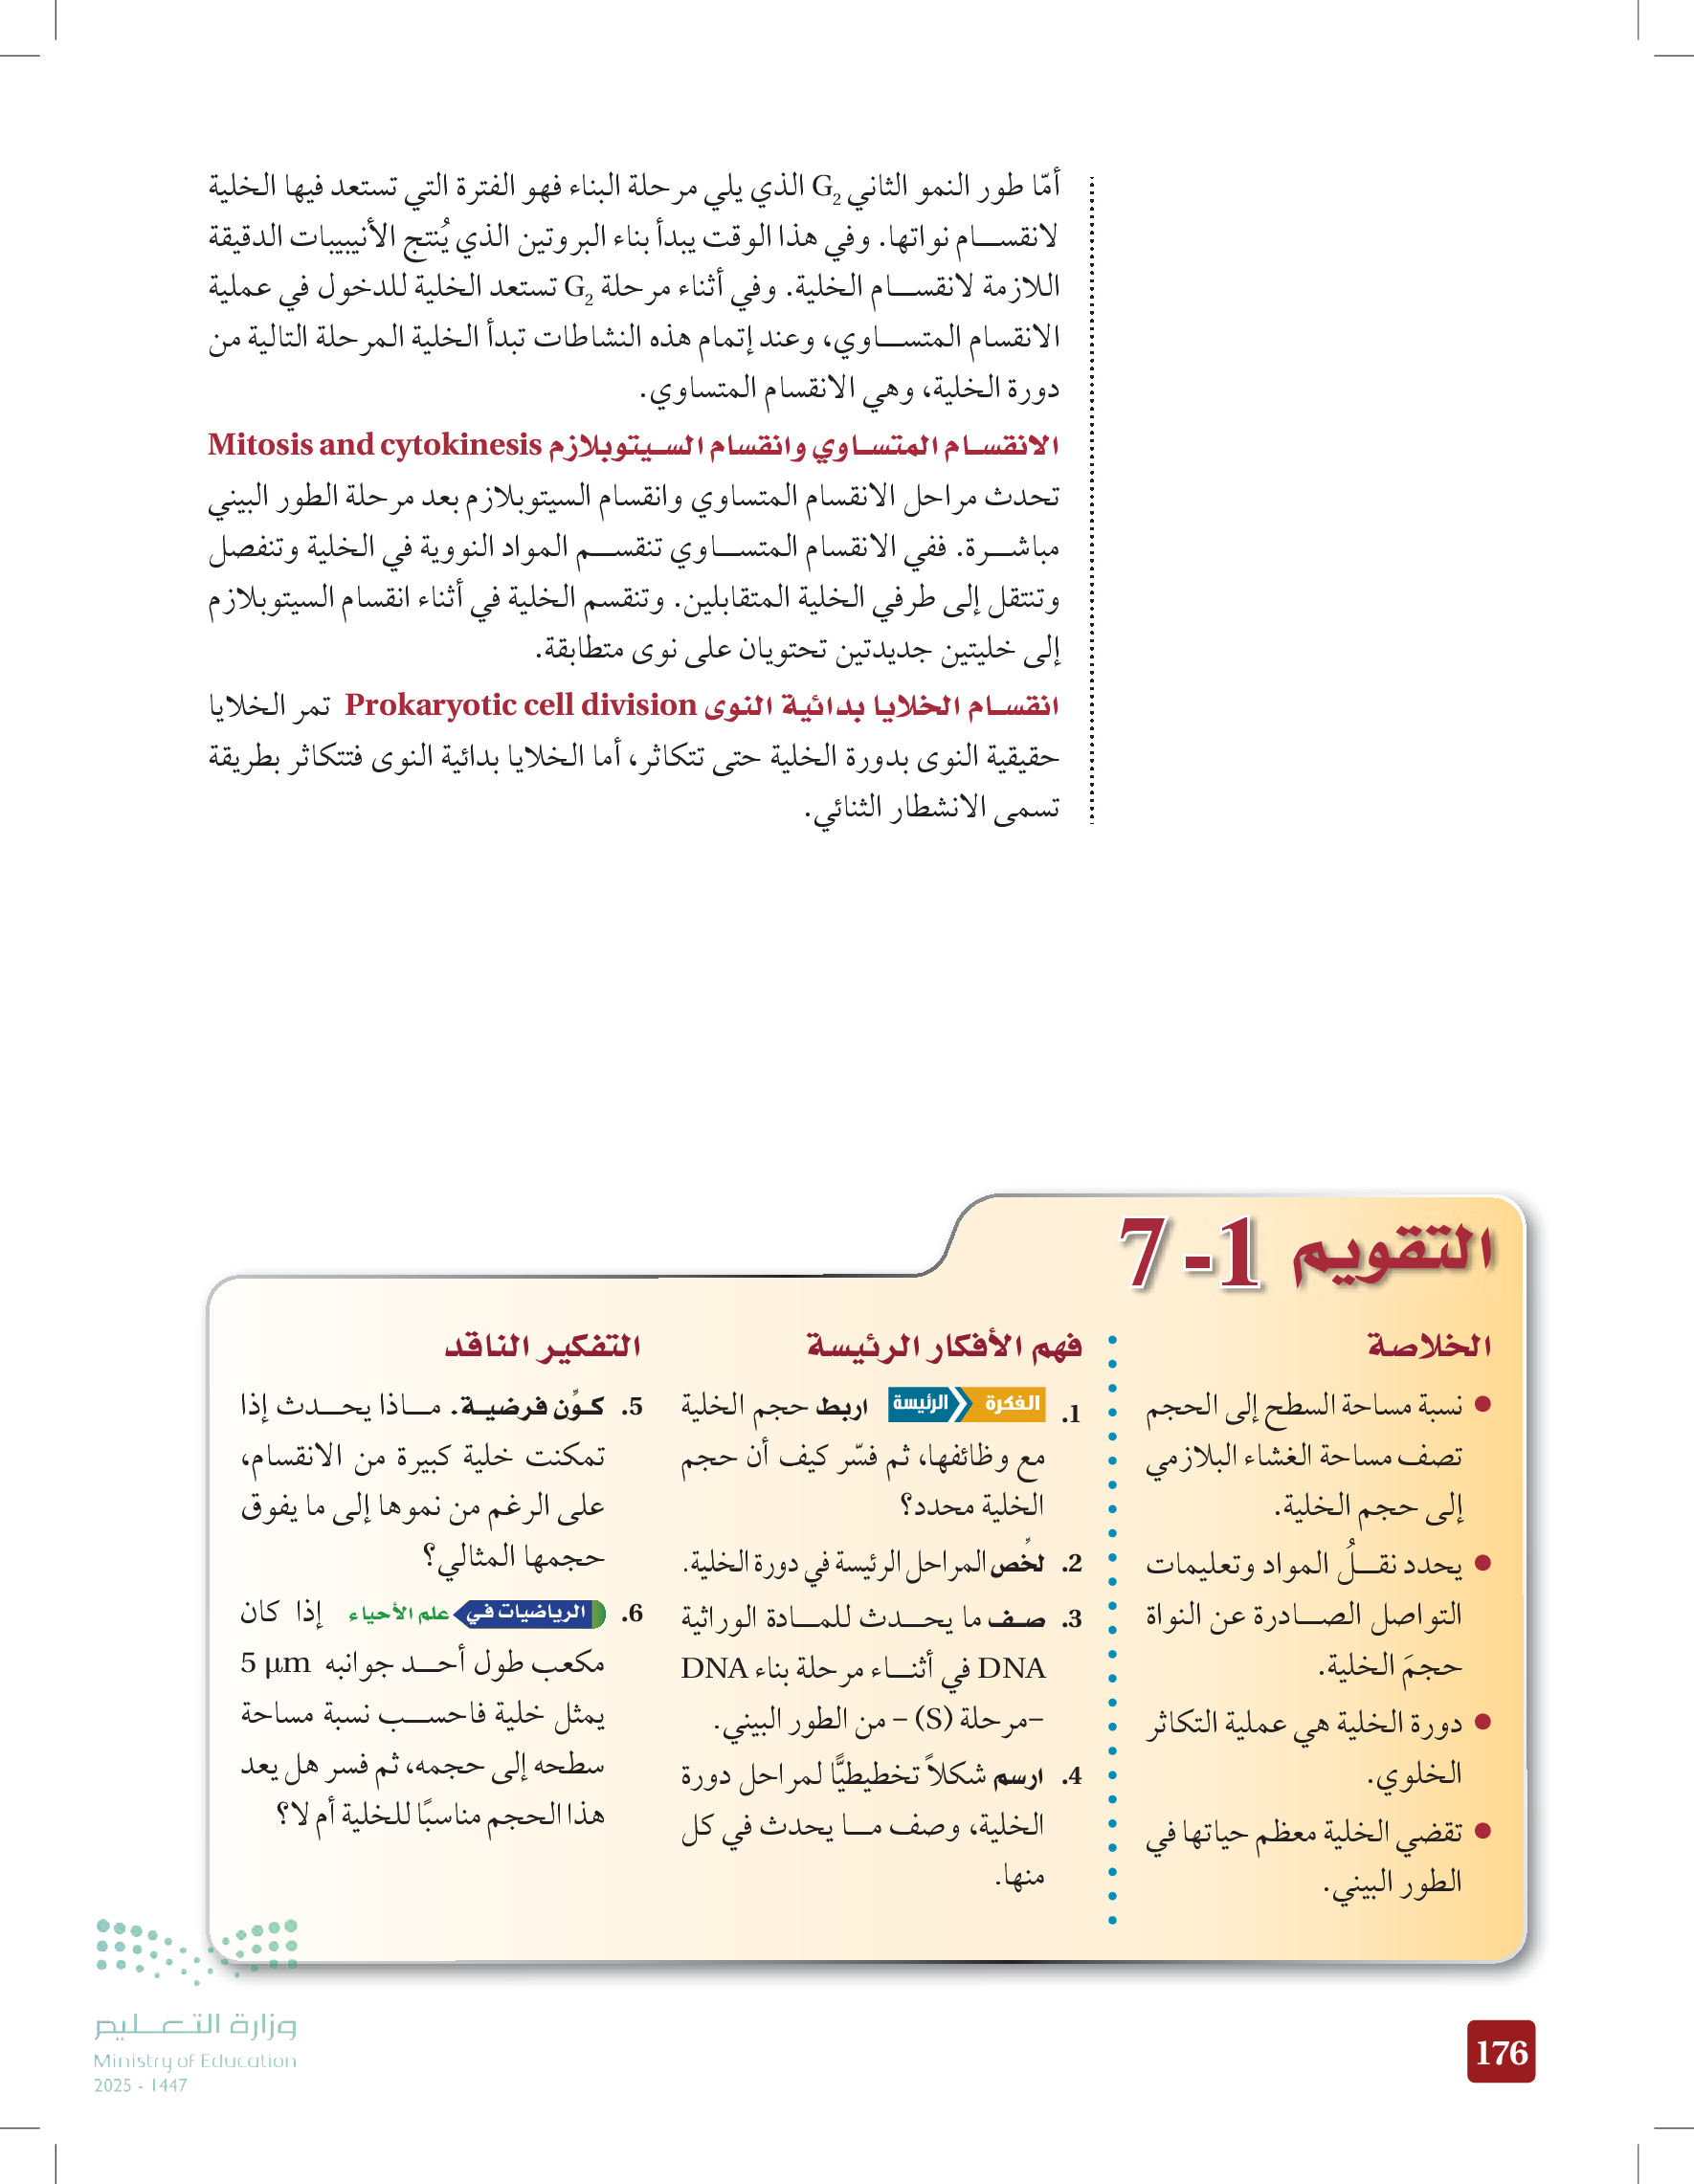 أمّا طور النمو الثاني G2 الذي يلي مرحلة البناء فهو الفترة التي تستعد فيها الخلية
لانقسام نواتها. وفي هذا الوقت يبدأ بناء البروتين الذي يُنتج الأنيبيبات الدقيقة
اللازمة لانقسام الخلية. وفي أثناء مرحلة G2 تستعد الخلية للدخول في عملية
الانقسام المتساوي، وعند إتمام هذه النشاطات تبدأ الخلية المرحلة التالية من
دورة الخلية، وهي الانقسام المتساوي.
الانقسام المتساوي وانقسام السيتوبلازم Mitosis and cytokinesis
تحدث مراحل الانقسام المتساوي وانقسام السيتوبلازم بعد مرحلة الطور البيني
مباشرة. ففي الانقسام المتساوي تنقسم المواد النووية في الخلية وتنفصل
وتنتقل إلى طرفي الخلية المتقابلين. وتنقسم الخلية في أثناء انقسام السيتوبلازم
إلى خليتين جديدتين تحتويان على نوى متطابقة.
انقسام الخلايا بدائية النوى Prokaryotic cell division تمر الخلايا
حقيقية النوى بدورة الخلية حتى تتكاثر، أما الخلايا بدائية النوى فتتكاثر بطريقة
تسمى الانشطار الثنائي.
التقويم 1- 7
الخلاصة
● نسبة مساحة السطح إلى الحجم
تصف مساحة الغشاء البلازمي
إلى حجم الخلية.
● يحدد نقلُ المواد وتعليمات
التواصل الصادرة عن النواة
حجمَ الخلية.
● دورة الخلية هي عملية التكاثر
الخلوي.
● تقضي الخلية معظم حياتها في
الطور البيني.
فهم الأفكار الرئيسة
1. الفكرة الرئيسة اربط حجم الخلية
مع وظائفها، ثم فسّر كيف أن حجم
الخلية محدد؟
2. لخِّص المراحل الرئيسة في دورة الخلية.
3. صف ما يحدث للمادة الوراثية
DNA في أثناء مرحلة بناء DNA
-مرحلة (S) - من الطور البيني.
4. ارسم شكلاً تخطيطيًّا لمراحل دورة
الخلية، وصف ما يحدث في كل
منها.
التفكير الناقد
5. كوِّن فرضية. ماذا يحدث إذا
تمكنت خلية كبيرة من الانقسام،
على الرغم من نموها إلى ما يفوق
حجمها المثالي؟
6. الرياضيات في علم الأحياء إذا كان
مكعب طول أحد جوانبه 5 µm
يمثل خلية فاحسب نسبة مساحة
سطحه إلى حجمه، ثم فسر هل يعد
هذا الحجم مناسبًا للخلية أم لا؟
وزارة التعليم
Ministry of Education
2025 - 1447
176